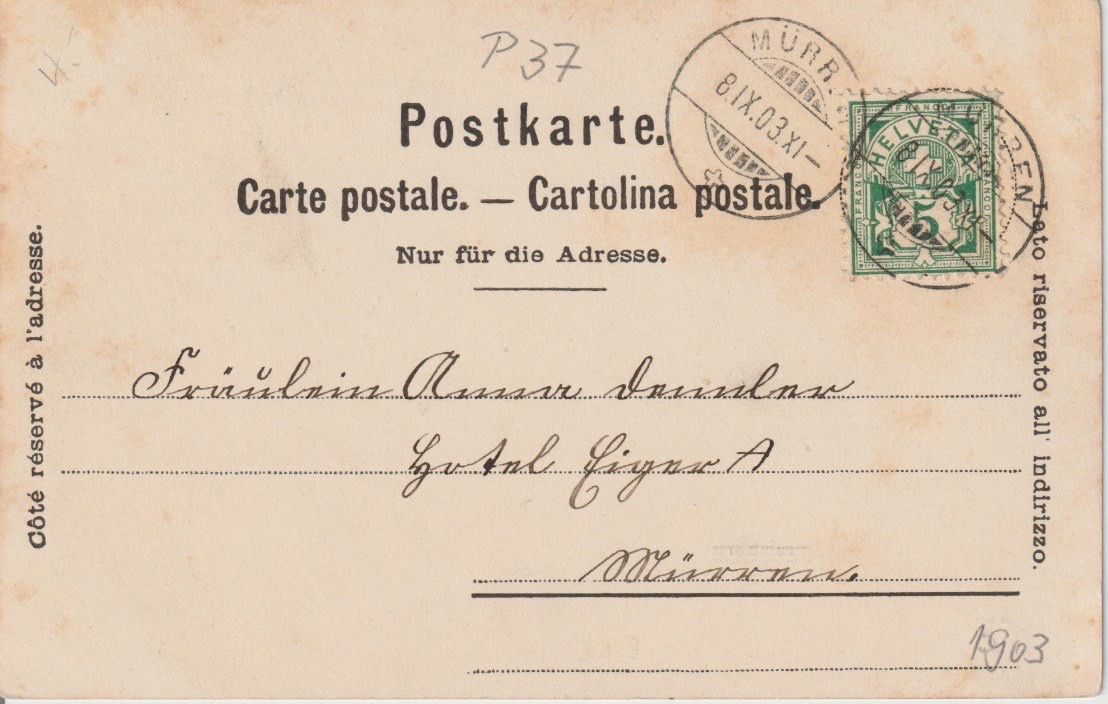 P 37
MÜRR
8.IX.03.XI–
Postkarte.
Carte postale. — Cartolina postale.
Nur für die Adresse.
FRANCO
HELVETIA
5
MÜRREN
Côté réservé à l'adresse.
Lato riservato all' indirizzo.
Fräulein Anna Dennler
Hotel Eiger
Mürren.
1903